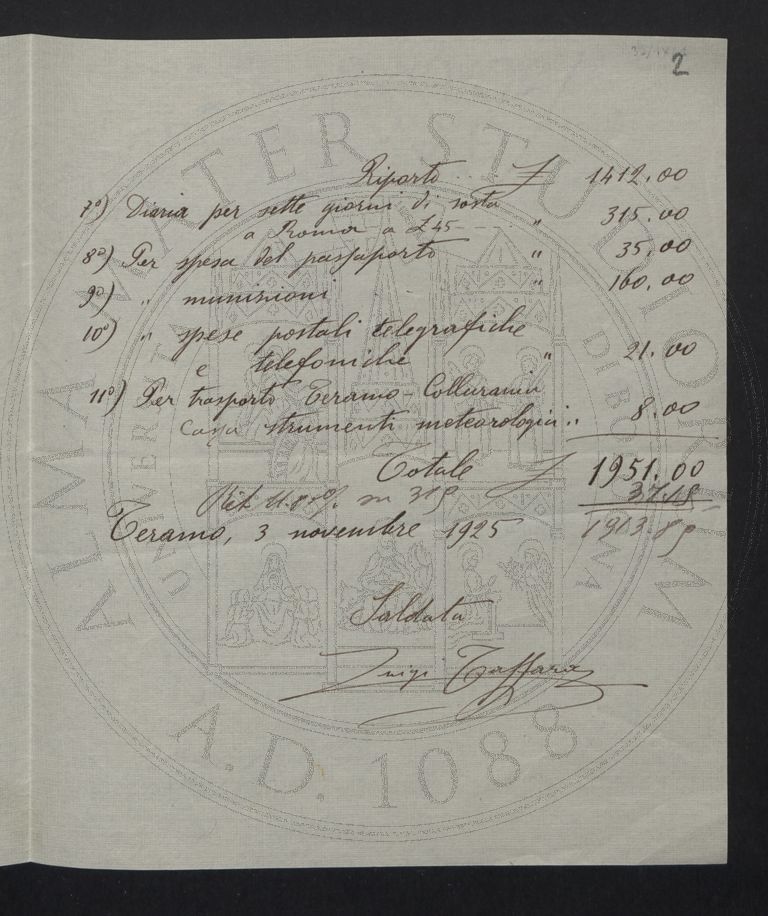 2
Riporto . . . £ 1412.00
7º) Diaria per sette giorni di sosta
a Roma a £ 45 - - - " 315.00
8º) Per spesa del passaporto " 35.00
9º) " munizioni " 160.00
10º) " spese postali telegrafiche
e telefoniche " 21.00
11º) Per trasporto Teramo-Collurania
strumenti meteorologici " 8.00
Totale £ 1951.00
Rit. 315 37.18
Teramo, 3 novembre 1925 1913.89
Saldata
Luigi Taffara
ALMA MATER STUDIORUM
A.D. 1088